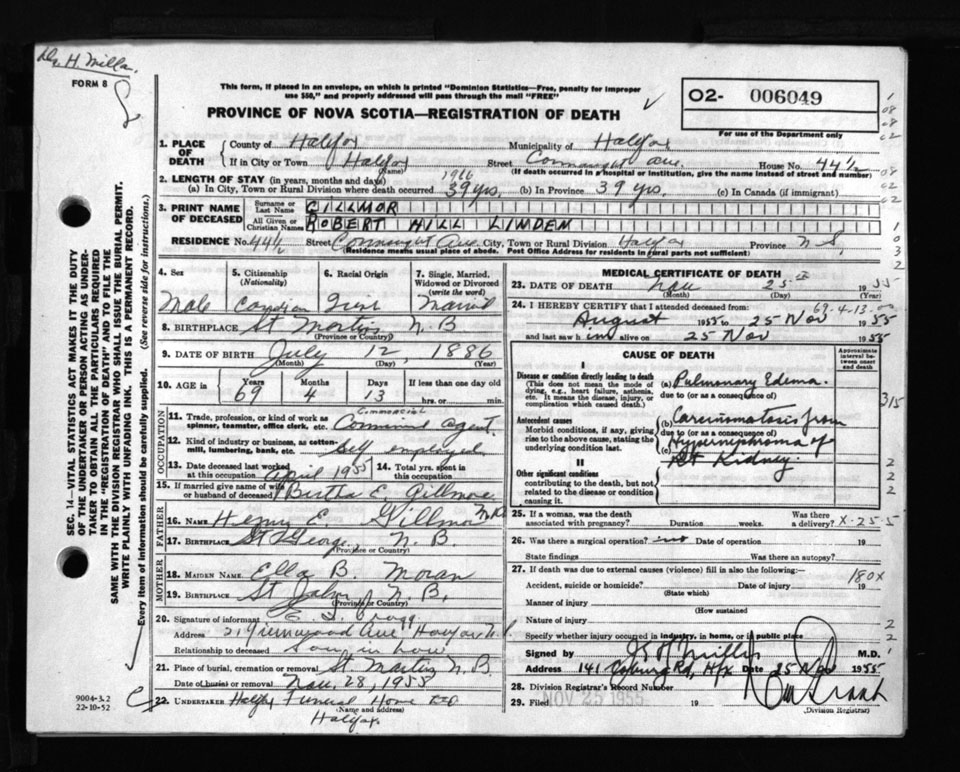 Dr. H. Miller.
FORM 8
This form, if placed in an envelope, on which is printed "Dominion Statistics—Free, penalty for improper
use $50," and properly addressed will pass through the mail "FREE"
PROVINCE OF NOVA SCOTIA—REGISTRATION OF DEATH
O2- 006049
For use of the Department only
1. PLACE OF DEATH County of Halifax Municipality of Halifax
If in City or Town Halifax (Name) Street Connaught Ave. House No. 44½
(If death occurred in a hospital or institution, give the name instead of street and number)
2. LENGTH OF STAY (in years, months and days) 1916
(a) In City, Town or Rural Division where death occurred 39 yrs. (b) In Province 39 yrs. (c) In Canada (if immigrant)
3. PRINT NAME OF DECEASED Surname or Last Name GILLMOR
All Given or Christian Names ROBERT HILL LINDEN
RESIDENCE No. 44½ Street Connaught Ave. City, Town or Rural Division Halifax Province N.S.
(Residence means usual place of abode. Post Office Address for residents in rural parts not sufficient)
4. Sex Male
5. Citizenship (Nationality) Canadian
6. Racial Origin Irish
7. Single, Married, Widowed or Divorced (write the word) Married
8. BIRTHPLACE St Martins N.B
(Province or Country)
9. DATE OF BIRTH July 12, 1886
(Month) (Day) (Year)
10. AGE in Years 69 Months 4 Days 13 If less than one day old hrs. or min.
OCCUPATION
11. Trade, profession, or kind of work as spinner, teamster, office clerk, etc. Commercial agent
12. Kind of industry or business, as cotton-mill, lumbering, bank, etc. Self employed
13. Date deceased last worked at this occupation April 1955 14. Total yrs. spent in this occupation
15. If married give name of wife or husband of deceased Bertha E. Gillmor
FATHER
16. NAME Henry E. Gillmor
17. Birthplace St George, N.B.
(Province or Country)
MOTHER
18. MAIDEN NAME Ella B. Moran
19. BIRTHPLACE St John, N.B.
(Province or Country)
20. Signature of informant
Address Ave Halifax N.S.
Relationship to deceased Son in law
21. Place of burial, cremation or removal St. Martins N.B
Date of burial or removal Nov. 28, 1955
22. UNDERTAKER Halifax Funeral Home Ltd
(Name and address)
Halifax.
MEDICAL CERTIFICATE OF DEATH
23. DATE OF DEATH Nov 25 1955
(Month) (Day) (Year)
69-4-13
24. I HEREBY CERTIFY that I attended deceased from:
August 1955 to 25 Nov 1955
and last saw him alive on 25 Nov 1955
CAUSE OF DEATH
Approximate interval between onset and death
I
Disease or condition directly leading to death
(This does not mean the mode of dying, e.g., heart failure, asthenia, etc. It means the disease, injury, or complication which caused death.)
(a) Pulmonary Edema.
due to (or as a consequence of)
Antecedent causes
Morbid conditions, if any, giving rise to the above cause, stating the underlying condition last.
(b) Carcinomatosis from
due to (or as a consequence of)
(c) Hypernephroma of
Rt Kidney.
II
Other significant conditions
contributing to the death, but not related to the disease or condition causing it.
25. If a woman, was the death associated with pregnancy? Duration weeks. Was there a delivery? X-25-5
26. Was there a surgical operation? no Date of operation 19
State findings Was there an autopsy?
27. If death was due to external causes (violence) fill in also the following:—
180X
Accident, suicide or homicide? Date of injury 19
(State which)
Manner of injury
(How sustained)
Nature of injury
Specify whether injury occurred in industry, in home, or in public place
Signed by M.D.
Address 141 Coburg Rd, Hfx Date 25 Nov 1955
28. Division Registrar's Record Number
29. Filed NOV 25 1955 19
(Division Registrar)
SEC. 14—VITAL STATISTICS ACT MAKES IT THE DUTY
OF THE UNDERTAKER OR PERSON ACTING AS UNDER-
TAKER TO OBTAIN ALL THE PARTICULARS REQUIRED
IN THE "REGISTRATION OF DEATH" AND TO FILE THE
SAME WITH THE DIVISION REGISTRAR WHO SHALL ISSUE THE BURIAL PERMIT.
WRITE PLAINLY WITH UNFADING INK. THIS IS A PERMANENT RECORD.
Every item of information should be carefully supplied. (See reverse side for instructions.)
9004-3.2
22-10-52